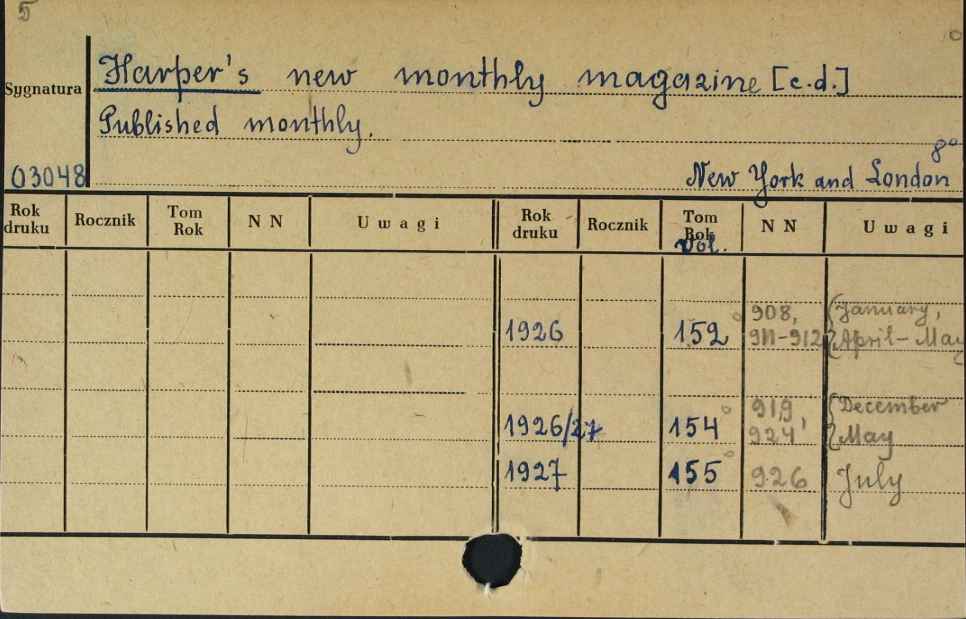 5
Sygnatura
Harper's new monthly magazine [c.d.]
Published monthly.
8°
03048
New York and London
Rok druku Rocznik Tom Rok N N Uwagi Rok druku Rocznik Tom Rok Vol. N N Uwagi
1926 152 908, 911-912 {January, April-May
1926/27 154 919, 924 {December May
1927 155 926 July